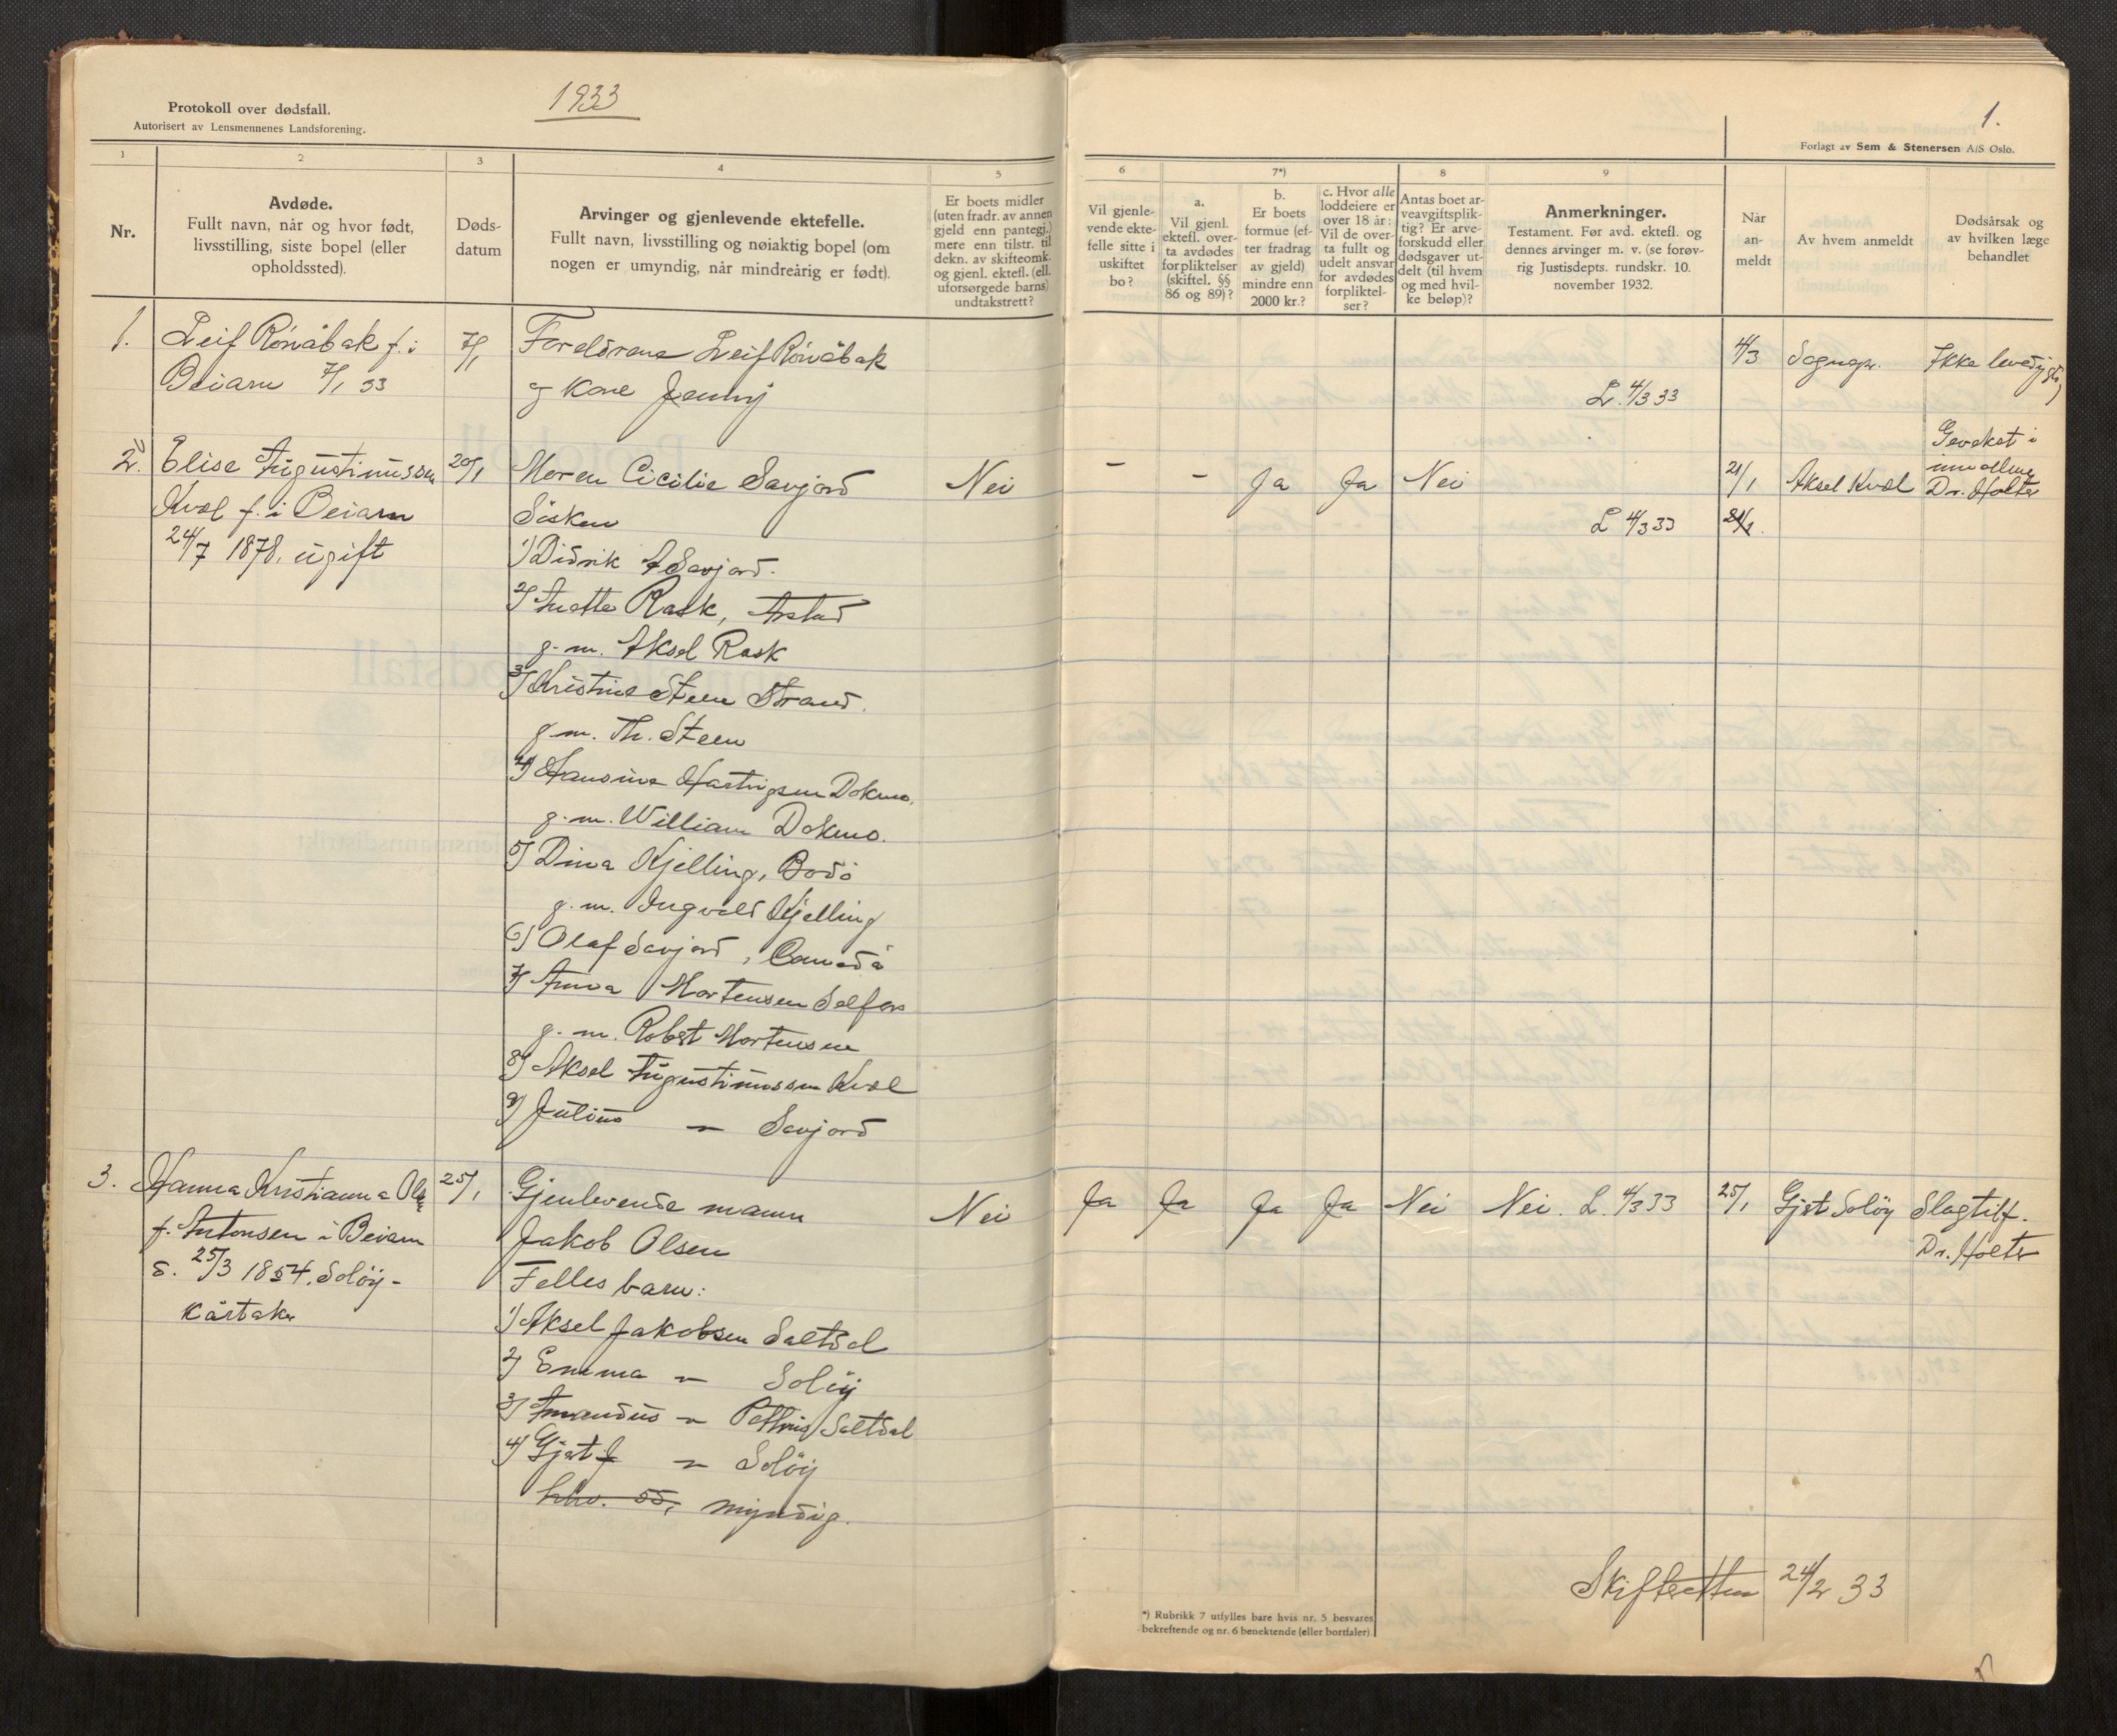 Protokoll over dødsfall.
Autorisert av Lensmennenes Landsforening.
1933
1.
Forlagt av Sem & Stenersen A/S Oslo.
1
2
3
4
5
6
7*)
8
9
Nr.
Avdøde.
Fullt navn, når og hvor født,
livsstilling, siste bopel (eller
opholdssted).
Døds-
datum
Arvinger og gjenlevende ektefelle.
Fullt navn, livsstilling og nøiaktig bopel (om
nogen er umyndig, når mindreårig er født).
Er boets midler
(uten fradr. av annen
gjeld enn pantegj.)
mere enn tilstr. til
dekn. av skifteomk.
og gjenl. ektefl. (ell.
uforsørgede barns)
undtakstrett?
Vil gjenle-
vende ekte-
felle sitte i
uskiftet
bo?
a.
Vil gjenl.
ektefl. over-
ta avdødes
forpliktelser
(skiftel. §§
86 og 89)?
b.
Er boets
formue (ef-
ter fradrag
av gjeld)
mindre enn
2000 kr.?
c. Hvor alle
loddeiere er
over 18 år:
Vil de over-
ta fullt og
udelt ansvar
for avdødes
forpliktel-
ser?
Antas boet ar-
veavgiftsplik-
tig? Er arve-
forskudd eller
dødsgaver ut-
delt (til hvem
og med hvil-
ke beløp)?
Anmerkninger.
Testament. Før avd. ektefl. og
dennes arvinger m. v. (se forøv-
rig Justisdepts. rundskr. 10.
november 1932.
Når
an-
meldt
Av hvem anmeldt
Dødsårsak og
av hvilken læge
behandlet
1. Leif Rönåbak f. i 7/1 Foreldrene Leif Rönåbak 4/3 Sognepr. Ikke levedygtig
Beiarn 7/1 33 og Kone Jenny L. 4/3 33
2. Elise Augustinussen 20/1 Moren Cicilie Savjord Nei - - Ja Ja Nei 21/1 Aksel Kvæl Dr. Holter
Kvæl f. i Beiarn Sösken L 4/3 33
24/7 1878, ugift 1) Didrik A Savjord.
2) Anette Rask, Arstad
g. m. Aksel Rask
3) Kristine Steen Strand.
g. m. Th. Steen
4) Hansine Hartvigsen Dokmo.
g. m. William Dokmo.
5) Dina Kjelling, Bodö
g. m. Ingvald Kjelling
6) Olaf Savjord, Canada
7) Anna Mortensen Selfors
g. m. Robert Mortensen
8) Aksel Augustinussen Kvæl
9) Julius — Savjord
3. Hanna Kristianna Olsen 25/1 Gjenlevende mann Nei Ja Ja Ja Ja Nei Nei. L. 4/3 33 25/1 Gjert Solöy Slagtilf.
f. Antonsen i Beiarn Jakob Olsen Dr. Holter
d. 25/3 1854. Solöy- Felles barn:
kårtaker 1) Aksel Jakobsen Saltdal
2) Emma — Solöy
3) Amandus — Saltdal
4) Gjert J — Solöy
myndig.
Skifteretten 24/2 33
*) Rubrikk 7 utfylles bare hvis nr. 5 besvares
bekreftende og nr. 6 benektende (eller bortfaler).